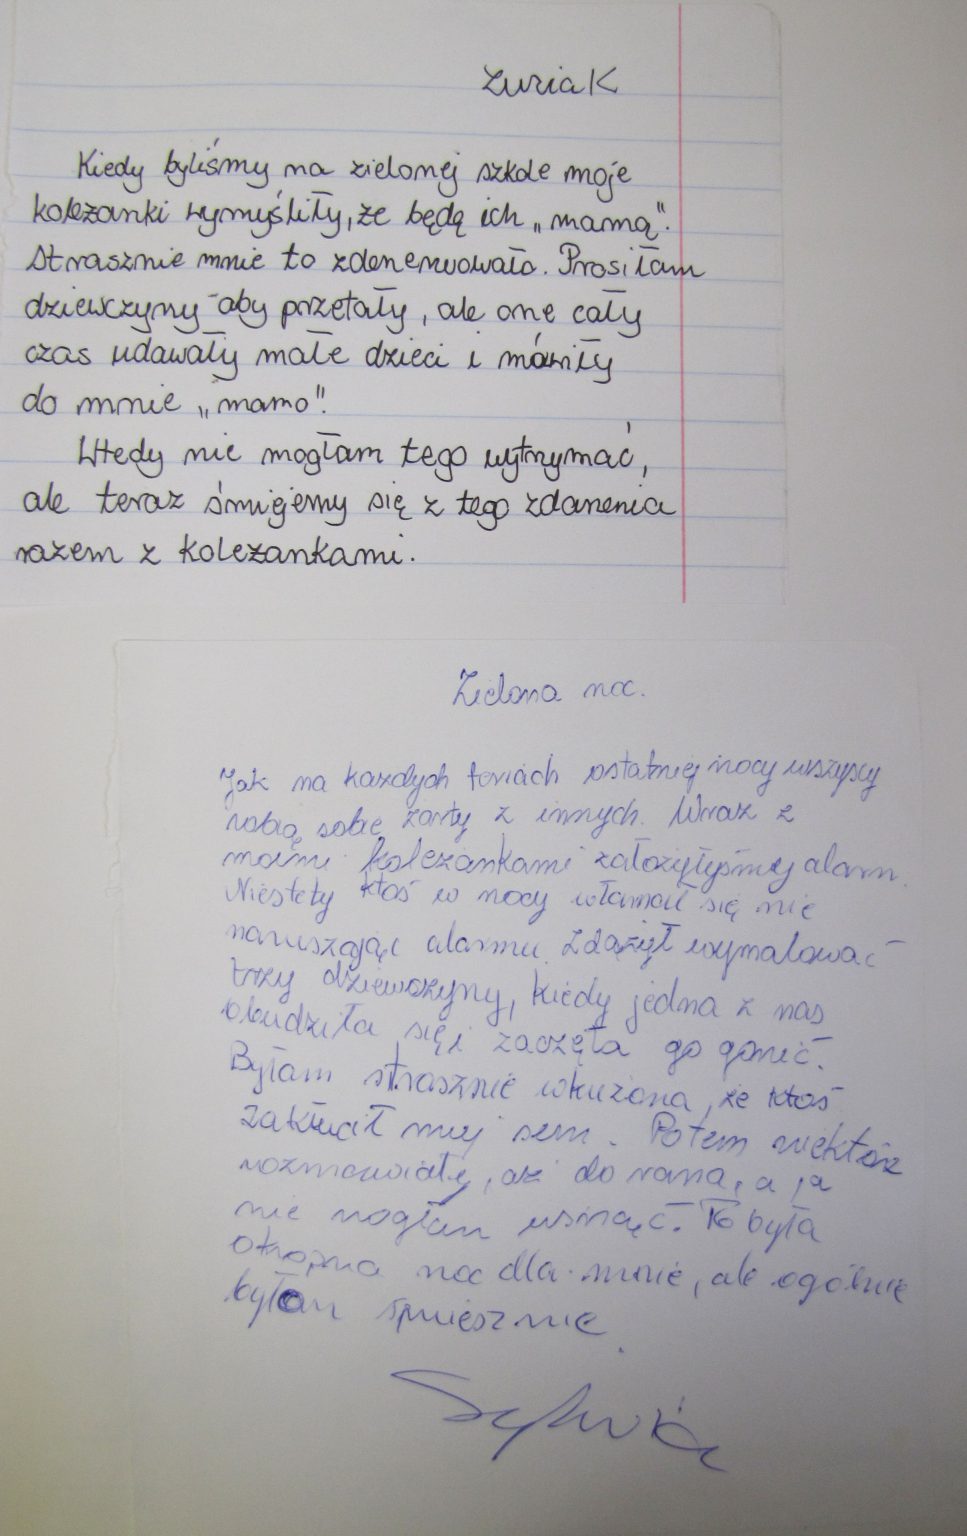 Zuzia K
Kiedy byliśmy na zielonej szkole moje
koleżanki wymyśliły, że będę ich „mamą".
Strasznie mnie to zdenerwowało. Prosiłam
dziewczyny aby przetały, ale one cały
czas udawały małe dzieci i mówiły
do mnie „mamo".
Wtedy nie mogłam tego wytrzymać,
ale teraz śmiejemy się z tego zdarzenia
razem z koleżankami.
Zielona noc.
Jak na każdych feriach ostatniej nocy wszyscy
robią sobie żarty z innych. Wraz z
moimi koleżankami założyłyśmy alarm.
Niestety ktoś w nocy włamał się nie
naruszając alarmu. Zdążył wymalować
trzy dziewczyny, kiedy jedna z nas
obudziła się i zaczęła go gonić.
Byłam strasznie wkurzona, że ktoś
zakłócił mój sen. Potem
rozmawiały, aż do rana, a ja
nie mogłam usnąć. To była
okropna noc dla mnie, ale ogólnie
było śmiesznie.
Sylwia